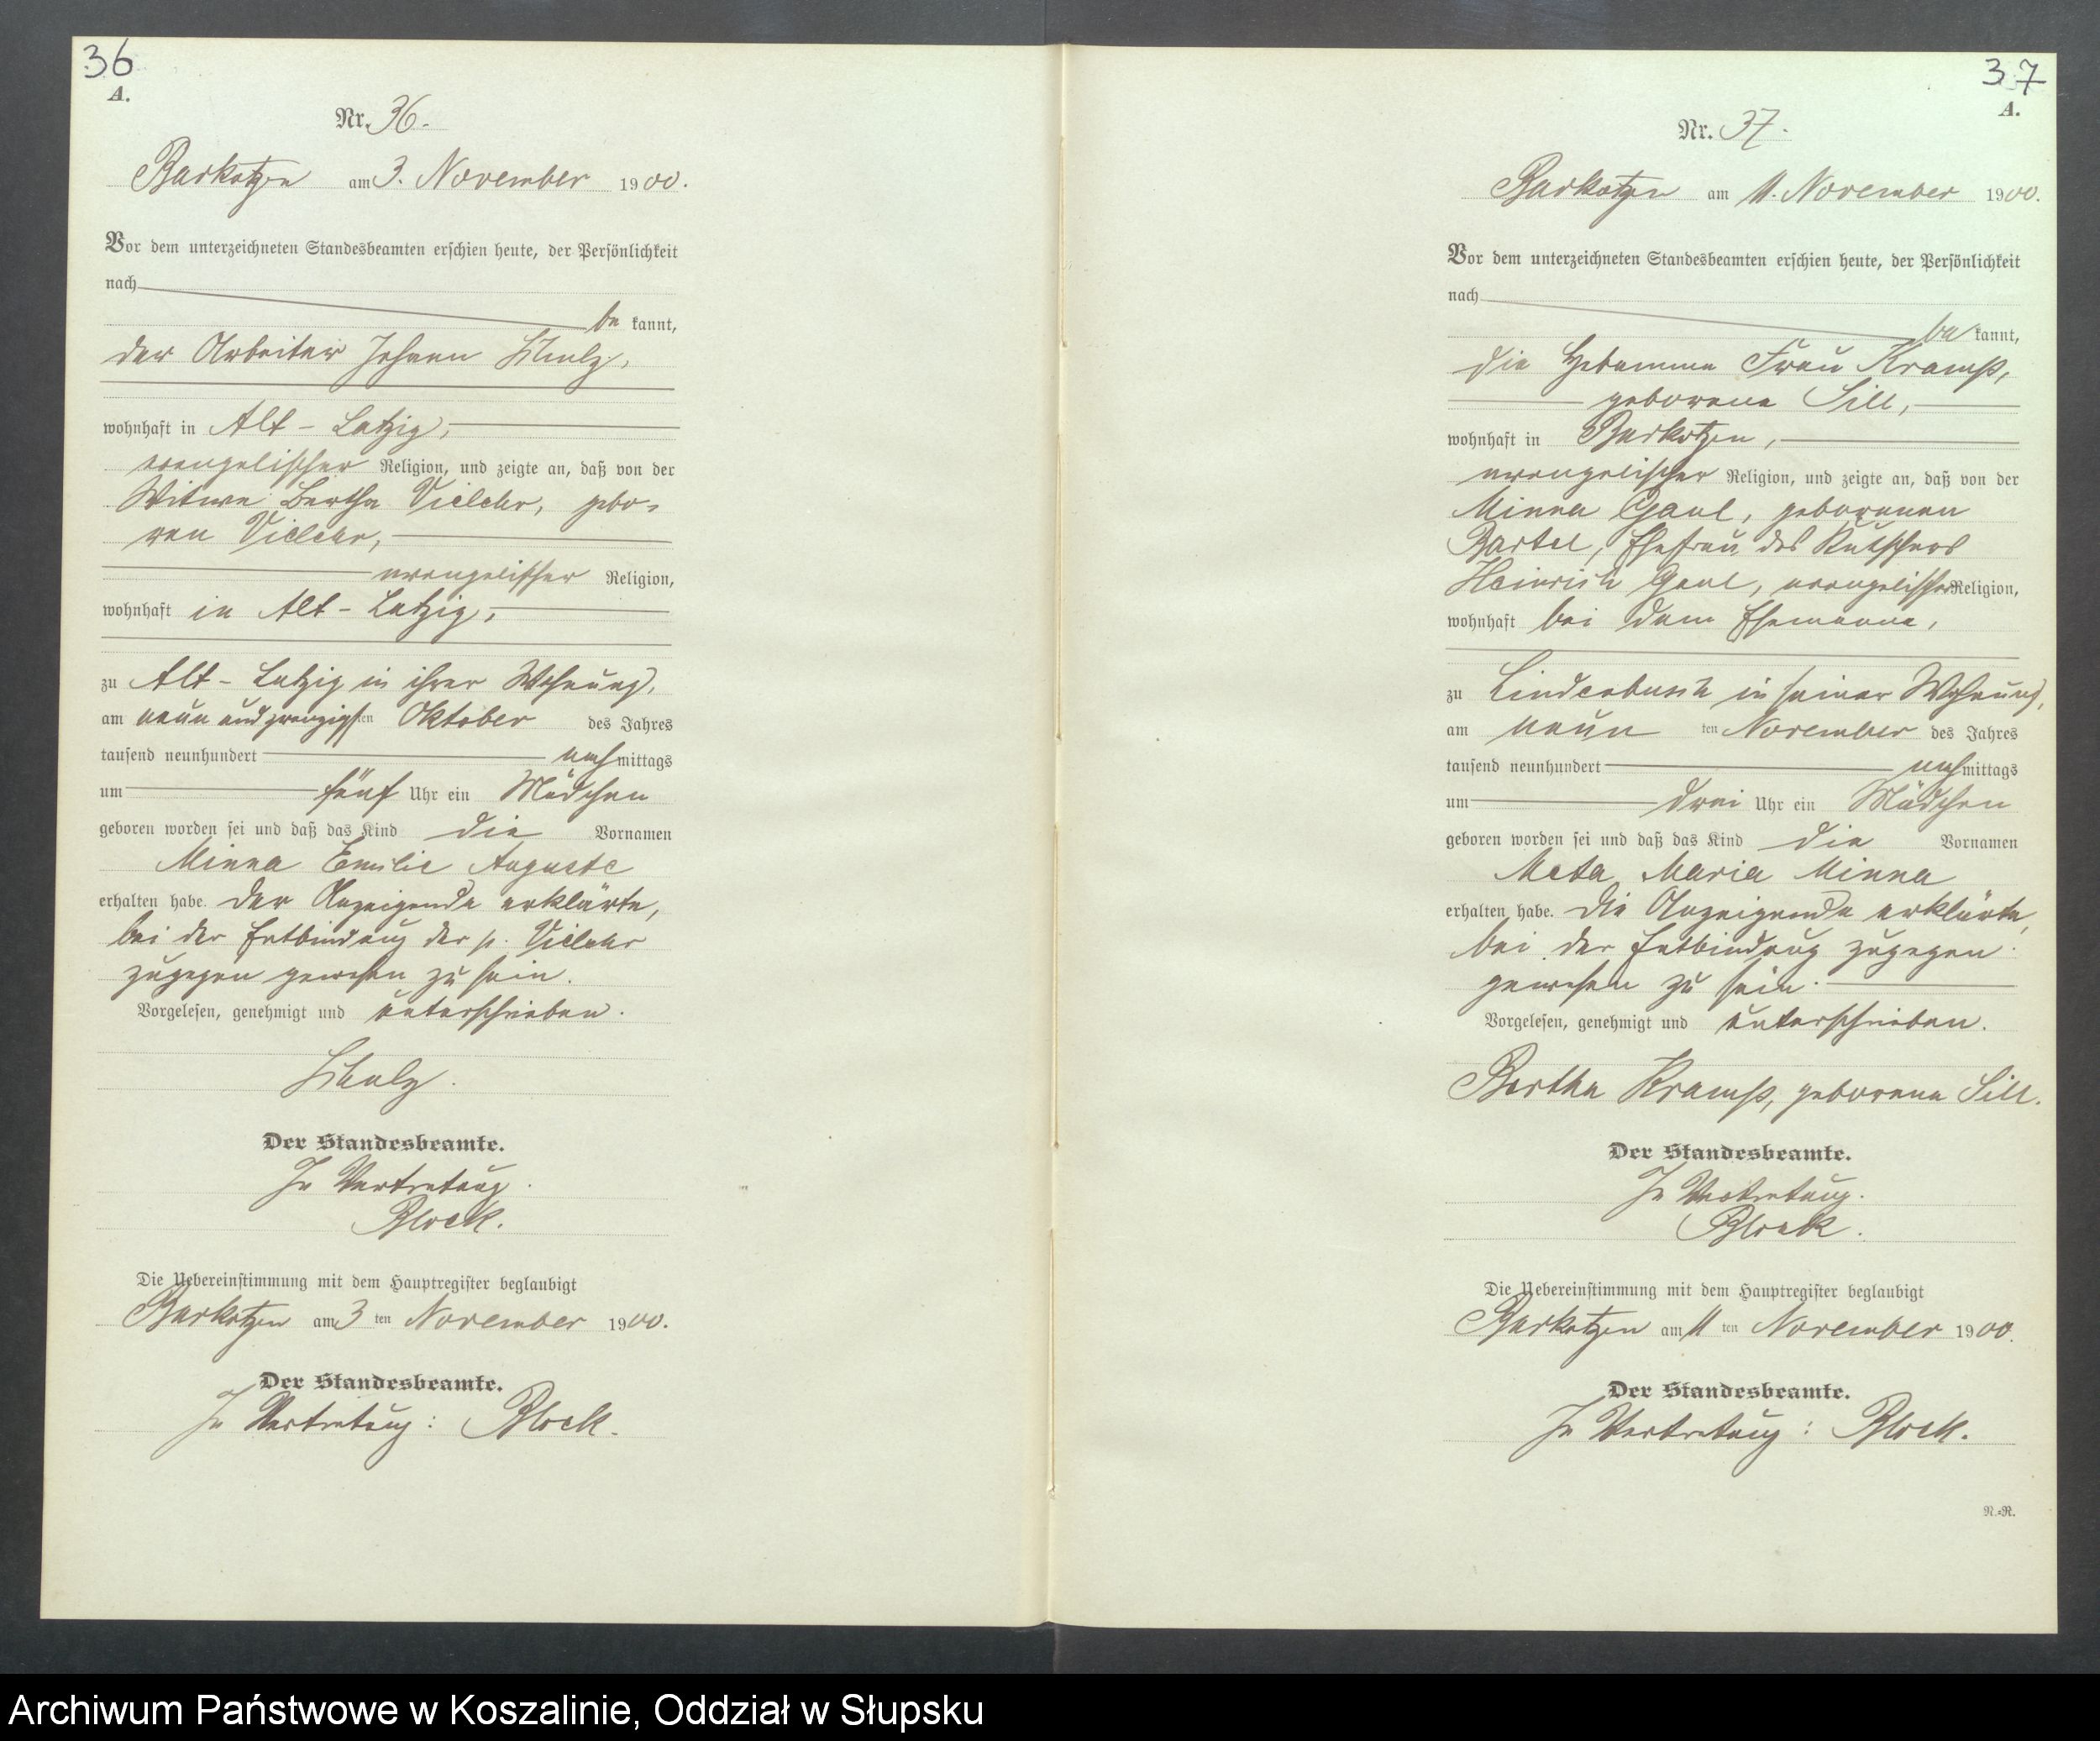 36
A.
Nr. 36.
Barkotzen am 3. November 1900.
Vor dem unterzeichneten Standesbeamten erschien heute, der Persönlichkeit
nach
be kannt,
der Arbeiter Johann Schulz,
wohnhaft in Alt-Latzig,
evangelischer Religion, und zeigte an, daß von der
Witwe Bertha Vielehr, gebo-
ren Vielehr,
evangelischer Religion,
wohnhaft in Alt-Latzig,
zu Alt-Latzig in ihrer Wohnung,
am neun und zwanzigsten Oktober des Jahres
tausend neunhundert nachmittags
um fünf Uhr ein Mädchen
geboren worden sei und daß das Kind die Vornamen
Minna Emilie Auguste
erhalten habe. Der Anzeigende erklärte,
bei der Entbindung der p. Vielehr
zugegen gewesen zu sein.
Vorgelesen, genehmigt und unterschrieben.
Schulz.
Der Standesbeamte.
In Vertretung.
Block.
Die Uebereinstimmung mit dem Hauptregister beglaubigt
Barkotzen am 3 ten November 1900.
Der Standesbeamte.
In Vertretung: Block.
37
A.
Nr. 37.
Barkotzen am 11. November 1900.
Vor dem unterzeichneten Standesbeamten erschien heute, der Persönlichkeit
nach
be kannt,
die Hebamme Frau Kramp,
geborene Sill,
wohnhaft in Barkotzen,
evangelischer Religion, und zeigte an, daß von der
Minna Gaul, geborenen
Bartel, Ehefrau des Kutschers
Heinrich Gaul, evangelischer Religion,
wohnhaft bei dem Ehemanne,
zu Lindenbusch in seiner Wohnung,
am neun ten November des Jahres
tausend neunhundert nachmittags
um drei Uhr ein Mädchen
geboren worden sei und daß das Kind die Vornamen
Meta Maria Minna
erhalten habe. Die Anzeigende erklärte,
bei der Entbindung zugegen
gewesen zu sein.
Vorgelesen, genehmigt und unterschrieben.
Bertha Kramp, geborene Sill.
Der Standesbeamte.
In Vertretung.
Block.
Die Uebereinstimmung mit dem Hauptregister beglaubigt
Barkotzen am 11 ten November 1900.
Der Standesbeamte.
In Vertretung: Block.
N.-R.
Archiwum Państwowe w Koszalinie, Oddział w Słupsku